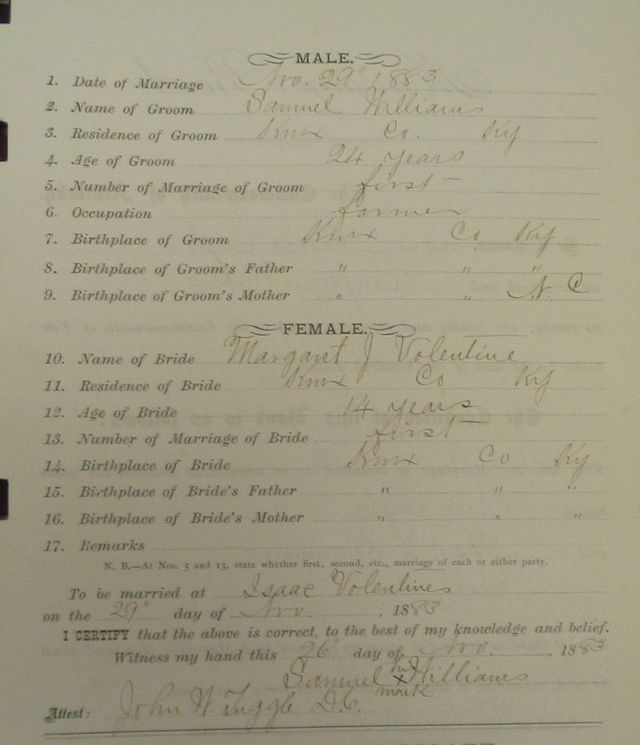 MALE.
1. Date of Marriage Nov. 29" 1883
2. Name of Groom Samuel Williams
3. Residence of Groom Knox Co. Ky
4. Age of Groom 24 years
5. Number of Marriage of Groom first
6. Occupation farmer
7. Birthplace of Groom Knox Co Ky
8. Birthplace of Groom's Father " " "
9. Birthplace of Groom's Mother " " N. C
FEMALE.
10. Name of Bride Margaret J Volentine
11. Residence of Bride Knox Co Ky
12. Age of Bride 14 years
13. Number of Marriage of Bride first
14. Birthplace of Bride Knox Co Ky
15. Birthplace of Bride's Father " " "
16. Birthplace of Bride's Mother " " "
17. Remarks
N. B.—At Nos. 5 and 13, state whether first, second, etc., marriage of each or either party.
To be married at Isaac Volentines
on the 29" day of Nov. , 1883
I CERTIFY that the above is correct, to the best of my knowledge and belief.
Witness my hand this 26" day of Nov. , 1883
Samuel his x mark Williams
Attest: John W Tuggle D.C.